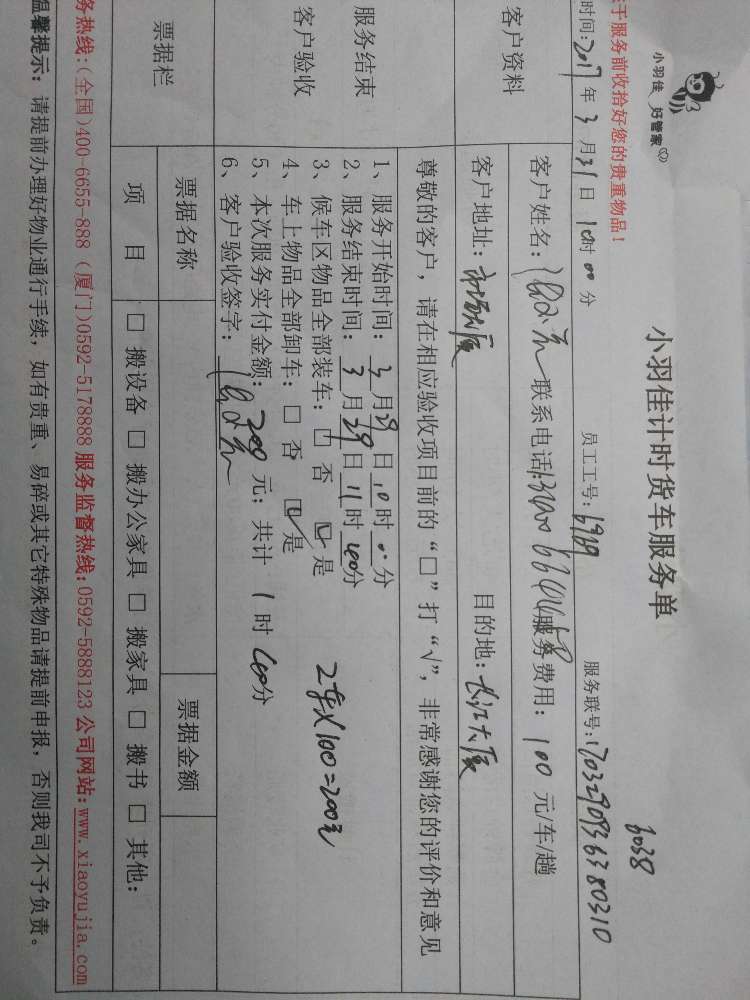 小羽佳 好管家
小羽佳计时货车服务单
6038
于服务前收拾好您的贵重物品！
时间：2017年3月31日10时00分 员工工号：6969 服务联号：
客户资料
客户姓名： 联系电话： 服务费用：100元/车/趟
客户地址： 目的地：长江大厦
服务结束
客户验收
尊敬的客户，请在相应验收项目前的“□”打“√”，非常感谢您的评价和意见
1、服务开始时间：3月29日10时00分
2、服务结束时间：3月29日11时40分
3、候车区物品全部装车：□否 □是
4、车上物品全部卸车：□否 □是
2车X100=200元
5、本次服务实付金额：200元；共计1时40分
6、客户验收签字：
票据栏
票据名称 票据金额
项目 □搬设备 □搬办公家具 □搬家具 □搬书 □其他：
务热线：(全国)400-6655-888（厦门）0592-5178888 服务监督热线：0592-5888123 公司网站：www.xiaoyujia.com
温馨提示：请提前办理好物业通行手续，如有贵重、易碎或其它特殊物品请提前申报，否则我司不予负责。